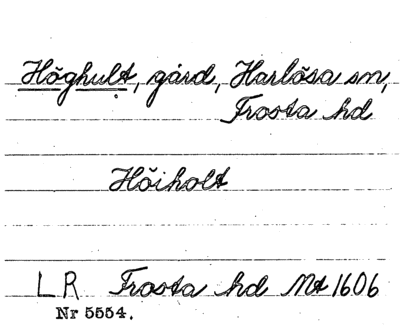 Höghult, gård, Harlösa sn,
Frosta hd
Höiholt
LR Frosta hd Mt 1606
Nr 5554.